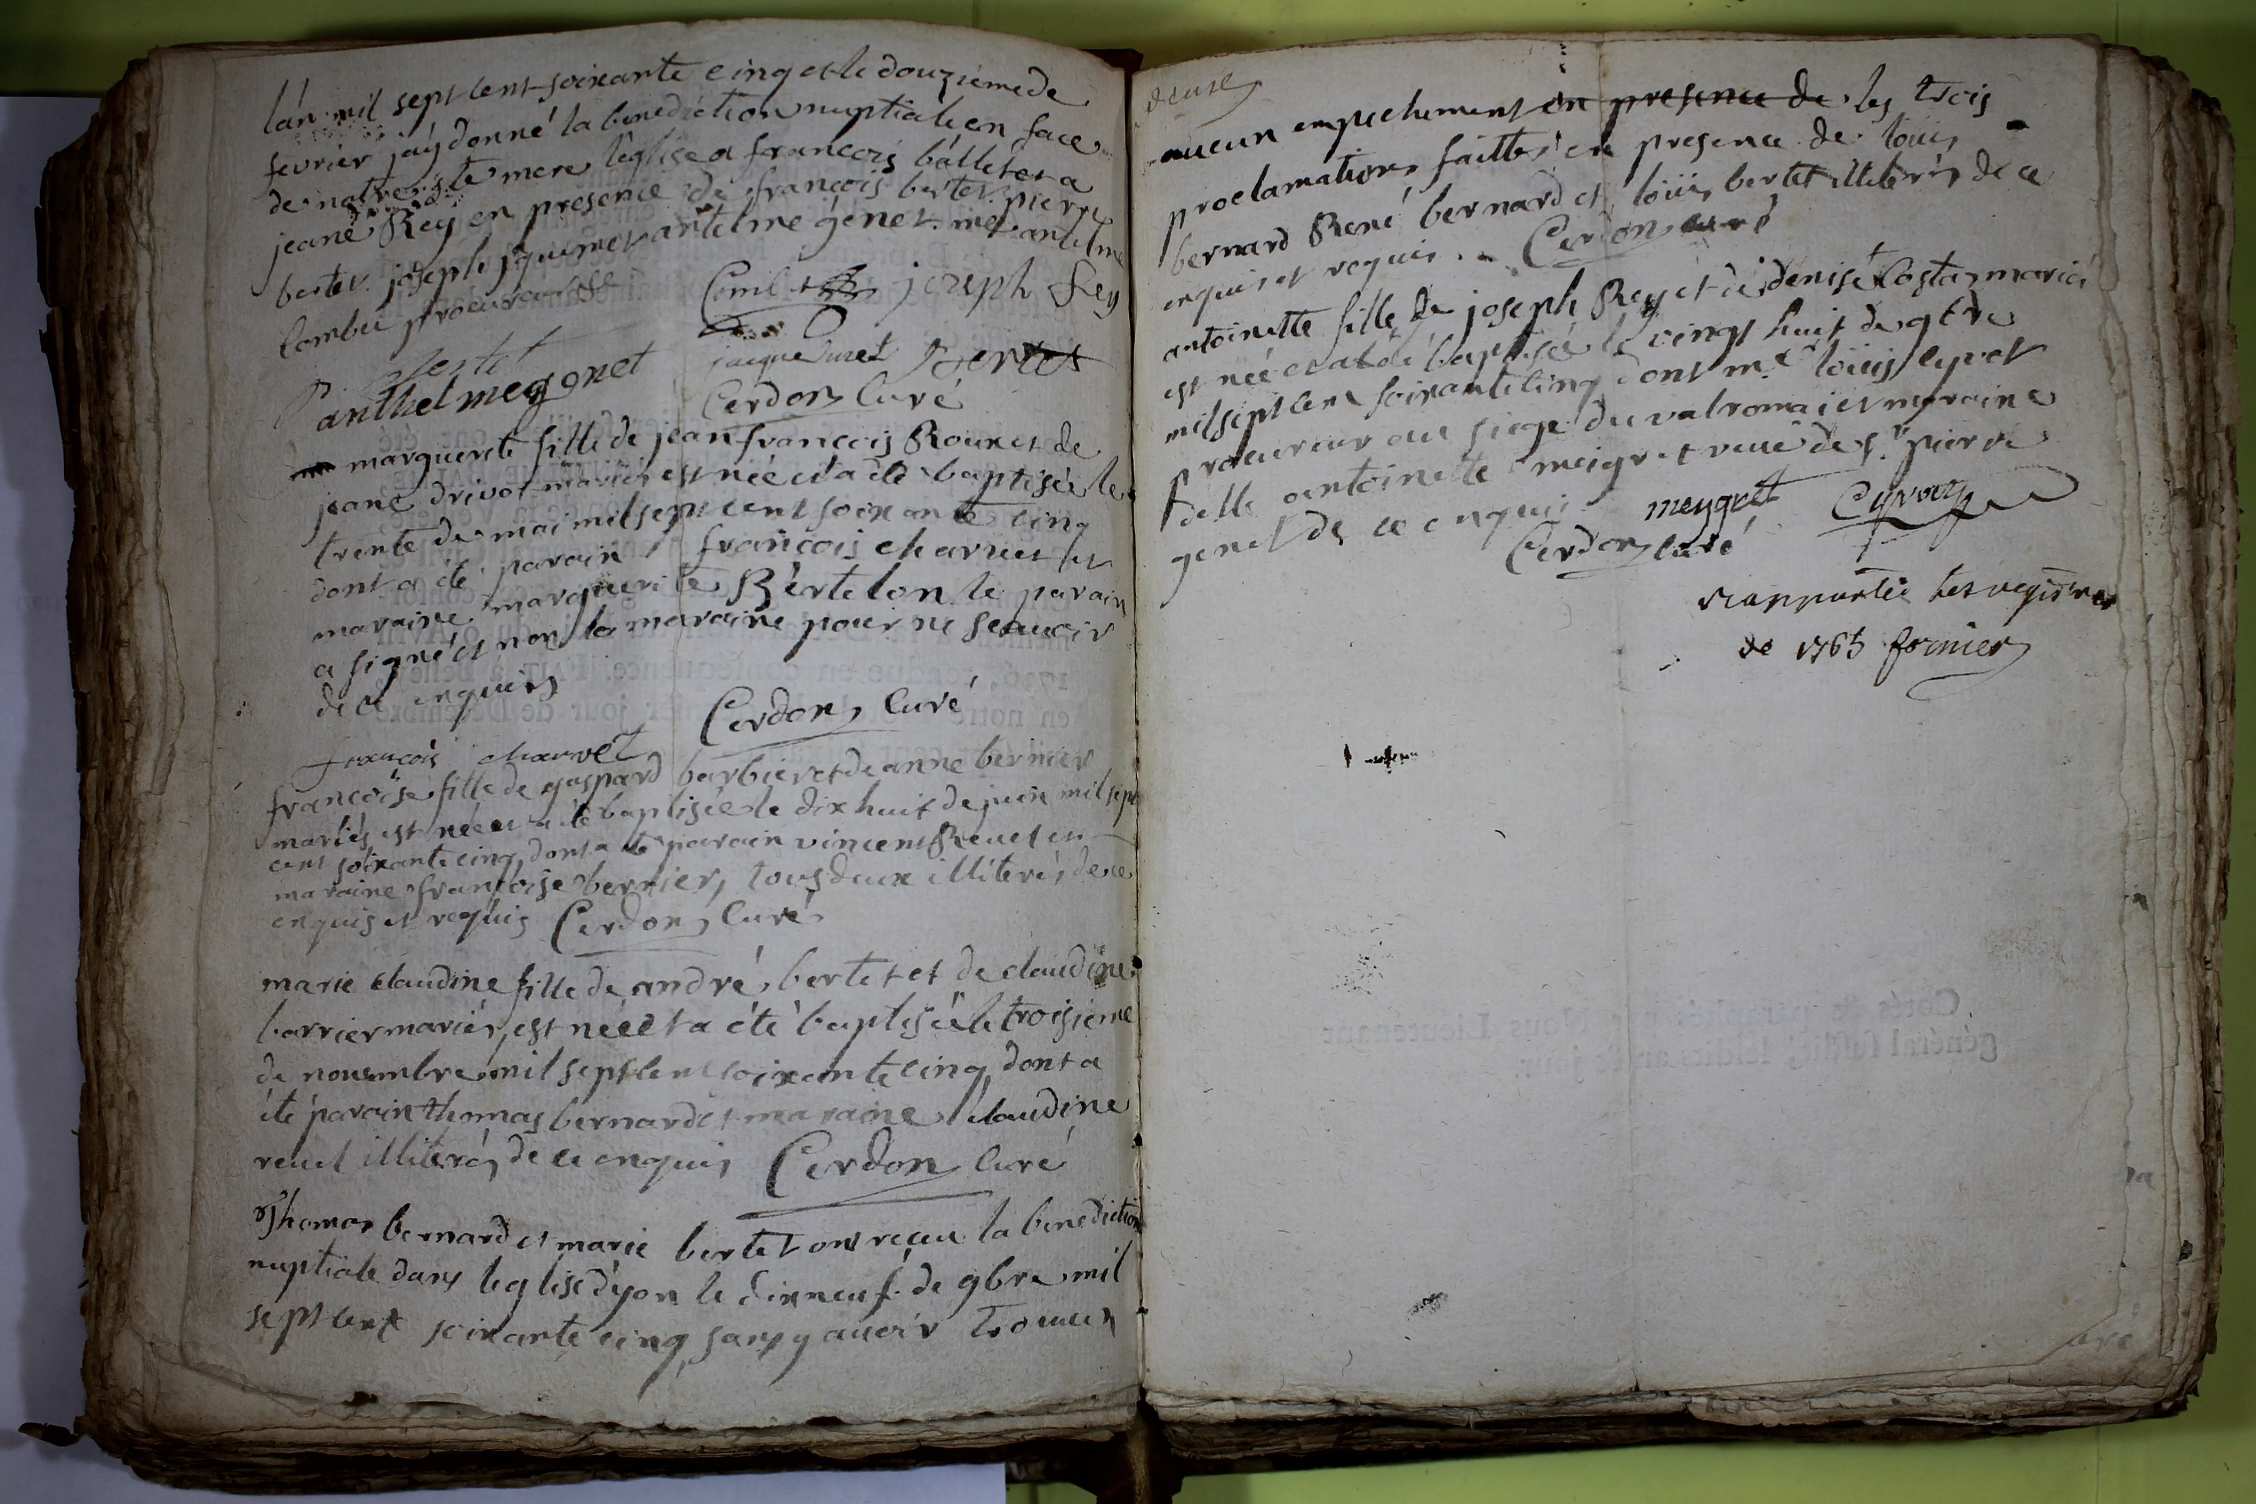 lan mil sept cent soixante cinq et le douziéme de
fevrier jaÿ donné la benediction nuptiale en face
de notre ste mere léglise a francois ballet et a
jeane Rey en presence de françois bertet pierre
bertet joseph jquemet antelme genet me antelme
combe procureur
joseph Rey
P bertet
anthelme genet
jaque
Cerdon Curé
marguerite fille de jean françois Roux et de
jeane drivot mariés est née et a été baptisée le
trente de mai mil sept cent soixante cinq
dont a été parain françois charvet et
maraine marguerite Bértelon le parain
a signé et non la maraine pour ne scauoir
de ce enquis
Cerdon Curé
françois charvet
françoise fille de gaspard barbier et de anne bernier
mariés est née et a été baptisée le dix huit de juin mil sept
cent soixante cinq dont a été parain vincent Revel et
maraine françoise bernier tous deux illiterés de ce
enquis et requis Cerdon Curé
marie claudine fille de andré bertet et de claudine
barrier mariés, est née et a été baptisée le troisiéme
de nouembre mil sept cent soixante cinq dont a
été parain thomas bernard et maraine claudine
reuel illiterés de ce enquis Cerdon Curé
Thomas bernard et marie bertet ont receu la benediction
nuptiale dans leglise dyon le dixneuf de 9bre mil
sept cent soixante cinq sans y auoir trouuer
aucun empechement en presence de les trois
proclamations faittes en presence de louis
bernard René bernard et loüis bertet illiterés de ce
enquis et requis Cerdon curé
antoinette fille de joseph Rey et de denise Costaz mariés
est née et a été baptisée le vingt huit de 9bre
mil sept cent soixante cinq dont me loüis cyvot
procureur au siege du valromai et maraine
delle antoinette meigret veuve de sr pierre
genet de ce enquis meygret Cyvoct
Cerdon Curé
rapporté les registres
de 1765 fornier